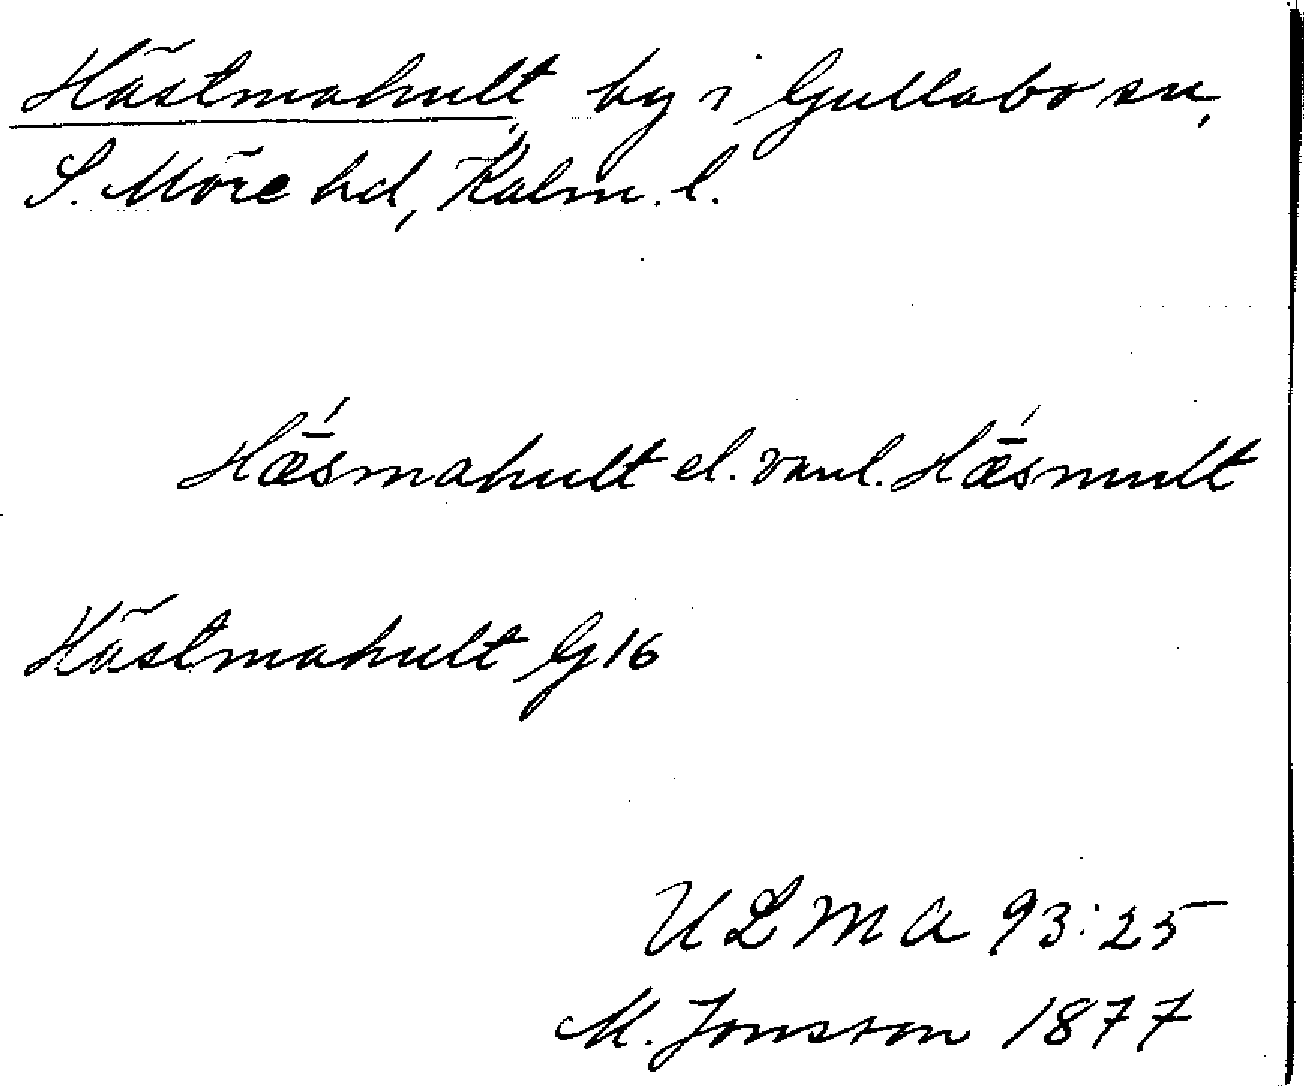 Hästmahult, by i Gullabo sn,
S. Möre hd, Kalm. l.
Hǣ́smahult el. vanl. Hǣ́smult
Hästmahult G16
ULMA 93:25
M. Jonsson 1877